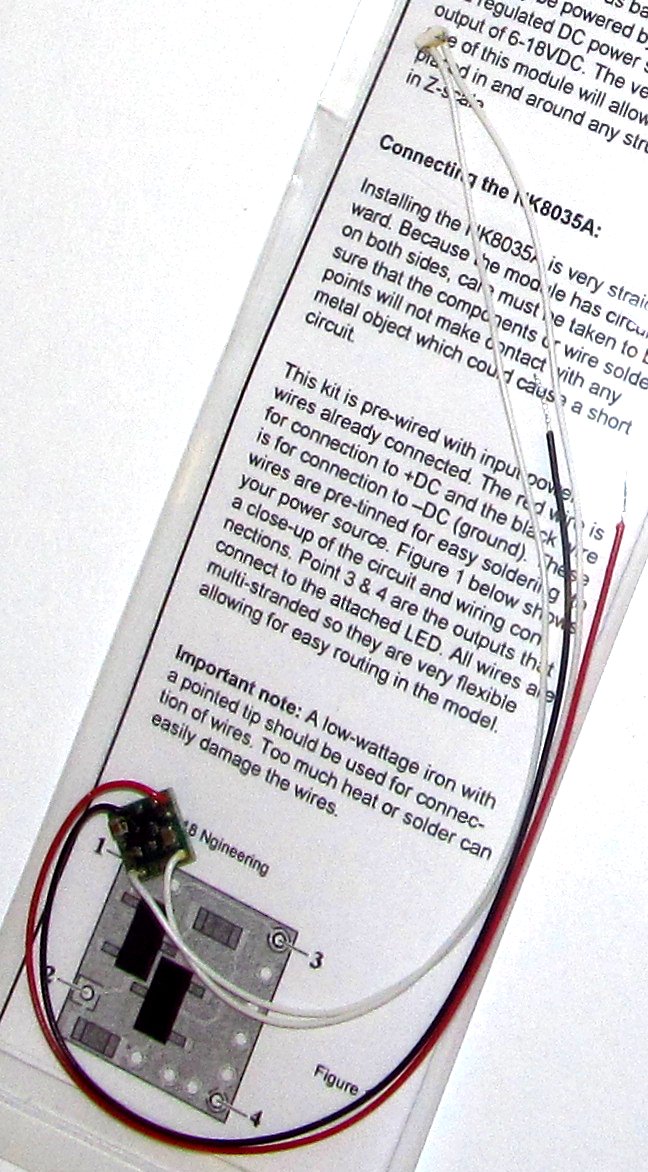 be powered by
regulated DC power s
output of 6-18VDC. The ve
of this module will allow
placed in and around any stru
in Z-scale
Connecting the NK8035A:
Installing the NK8035A is very straig
ward. Because the module has circu
on both sides, care must be taken to
sure that the components or wire solde
points will not make contact with any
metal object which could cause a short
circuit.
This kit is pre-wired with input power
wires already connected. The red wire is
for connection to +DC and the black wire
is for connection to –DC (ground). These
wires are pre-tinned for easy soldering to
your power source. Figure 1 below shows
a close-up of the circuit and wiring con
nections. Point 3 & 4 are the outputs that
connect to the attached LED. All wires are
multi-stranded so they are very flexible
allowing for easy routing in the model.
Important note: A low-wattage iron with
a pointed tip should be used for connec-
tion of wires. Too much heat or solder can
easily damage the wires.
18 Ngineering
1
3
2
Figure
4